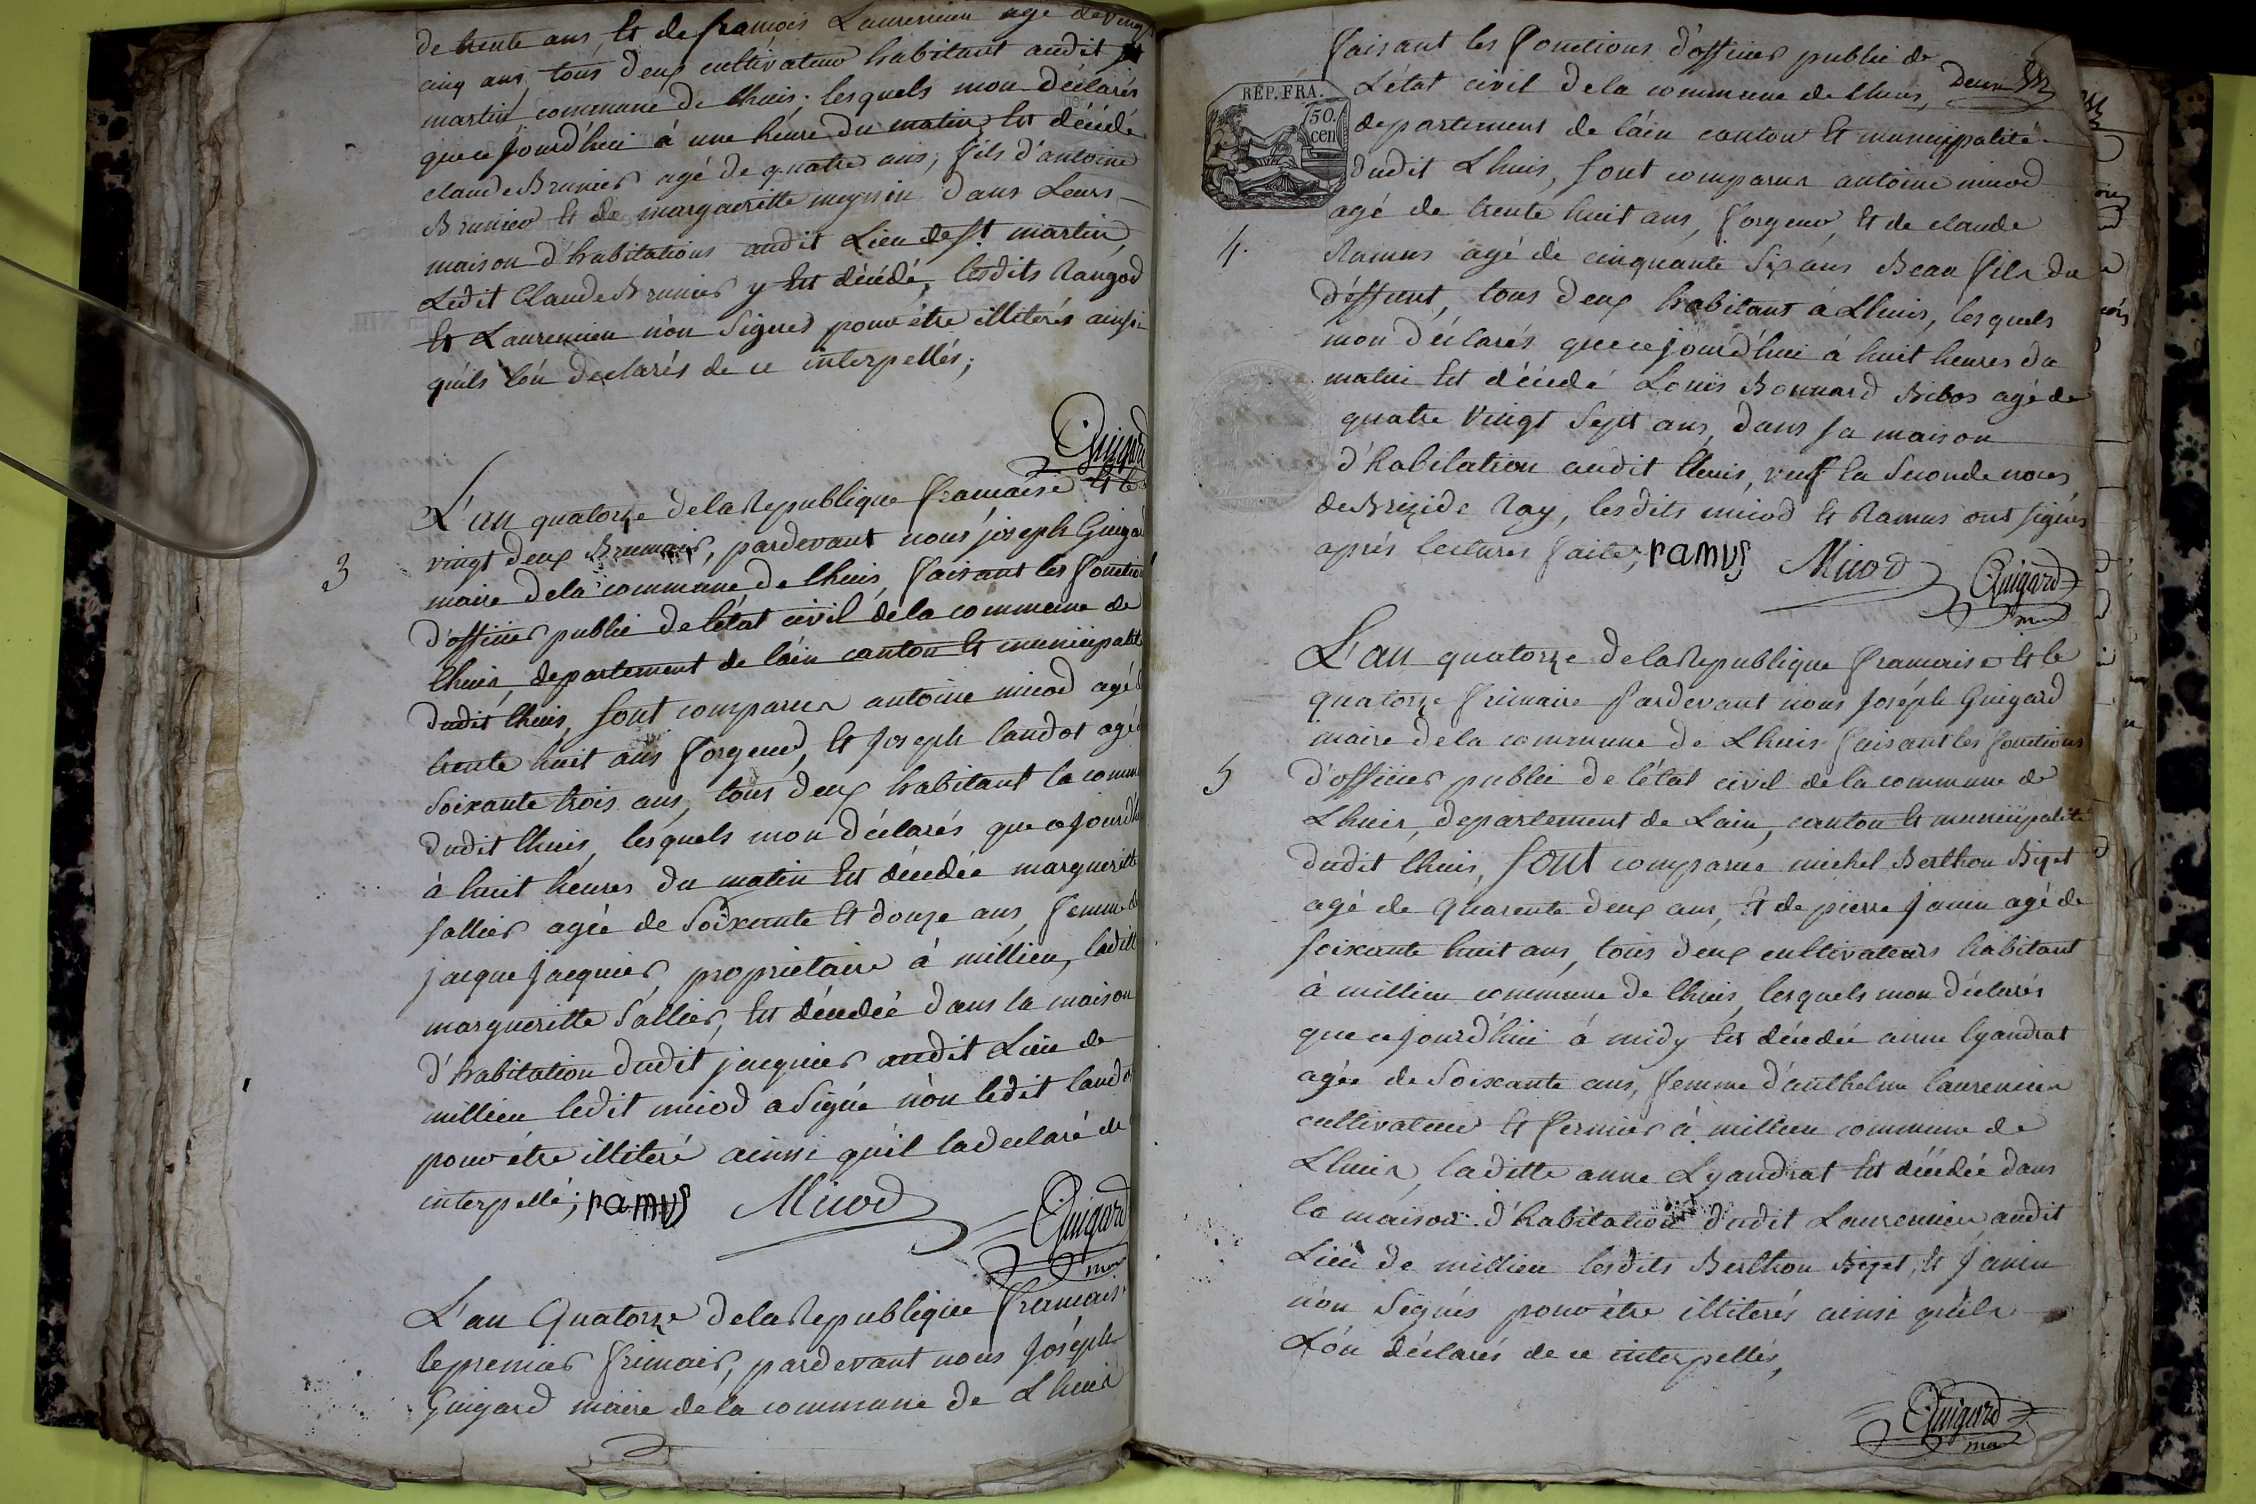 de trente ans, et de françois Laurencin agé de vingt
cinq ans, tous deux cultivateur habitant audit St
martin commune de lhuis; lesquels mon déclarés
que ce jourd'hui à une heure du matin est décédé
claude Brunier agé de quatre ans, fils d'antoine
Brunier et de margueritte meynin dans Leurs
maison d'habitations audit Lieu de St martin,
Ledit Claude Brunier y est décédé, lesdits Rangod
et Laurencin n'on Signes pour être illiterés ainsi
qu'ils l'on declarés de ce interpellés;
Guigard
L'an quatorze de la Republique française et le
3
vingt deux Brumair, pardevant nous joseph Guigard
maire de la commune de lhuis, faisant les fonction
d'officier public de l'état civil de la commune de
lhuis, departement de láin canton et municipalité
dudit lhuis, sont comparus antoine micod agé
trente huit ans forgeur, et joseph landot agé
Soixante trois ans, tous deux habitant la comm
dudit lhuis, lesquels mon déclarés que ce jourd'h
à huit heures du matin est décédée margueritte
sallier agée de Soixante et douze ans, femme de
jacque jacquier, propriétaire à millieu, laditte
margueritte Sallier, est décedée dans la maison
d'habitation dudit jacquier audit Lieu de
millieu ledit micod a Signé nòn ledit landot
pour être illiteré ainsi qu'il la declaré de
interpellé; ramus Micod Guigard
mai
L'an Quatorze de la Republique français
le premier frimair, pardevant nous Joséph
Guigard maire de la commune de Lhuis
faisant les fonctions d'officier public de
L'état civil de la commune de lhuis,
RÉP. FRA.
50.
cen
departement de láin canton et municippalité
dudit Lhuis, sont comparus antoine micod
agé de trente huit ans, forgeur, et de claude
4.
Ramus agé de cinquante Six ans Beau fils du
déffunt, tous deux habitant à Lhuis, lesquels
mon déclarés que ce jourd'hui à huit heures du
matin est décédé Louis Bonnard Bibos agé de
quatre vingt Sept ans, dans sa maison
d'habitation audit lhuis, veuf en Seconde noces
de Brizide Ray, lesdits micod et Ramus ont signés
aprés lectures faite; ramus Micod Guigard
mai
L'an quatorze de la Republique francaise et le
quatorze frimaire Pardevant nous Joséph Guigard
maire de la commune de Lhuis faisant les fonctions
5
d'officier public de l'état civil de la commune de
Lhuis, departement de Lain, canton et municipalité
dudit lhuis, sont comparus michel Berthon Bizet
agé de quarente deux ans, et de pierre Janin agé de
soixante huit ans, tous deux cultivateurs habitant
à millieu commune de lhuis, lesquels mon déclarés
que ce jourd'hui à midy est décédée anne lyandrat
agée de Soixante ans, femme d'anthelme laurencin
cultivateur et fermier à millieu commune de
Lhuis, laditte anne Lyandrat est décédée dans
la maison d'habitation dudit Laurencin audit
Lieu de millieu lesdits Berthon Bizet, et Janin
n'on Signés pour être illiterés ainsi qu'ils
L'on déclarés de ce interpellés,
Guigard
mai